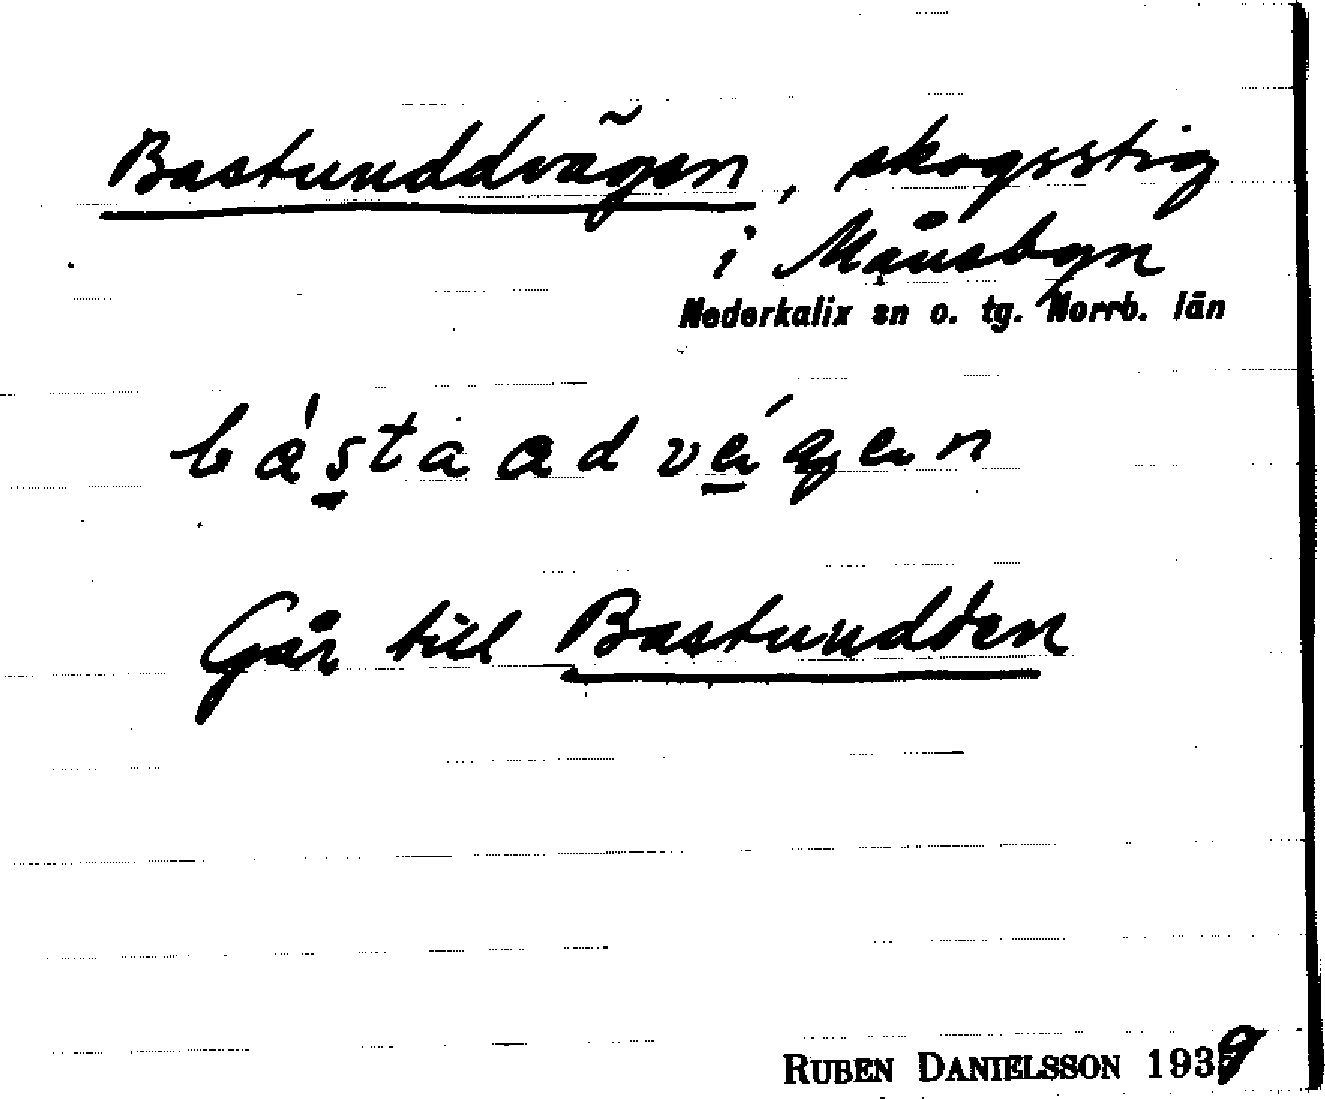 Bastunddvägen, skogsstig
i Månsbyn
Nederkalix sn o. tg. Norrb. län
Går till Bastundden
RUBEN DANIELSSON 1939